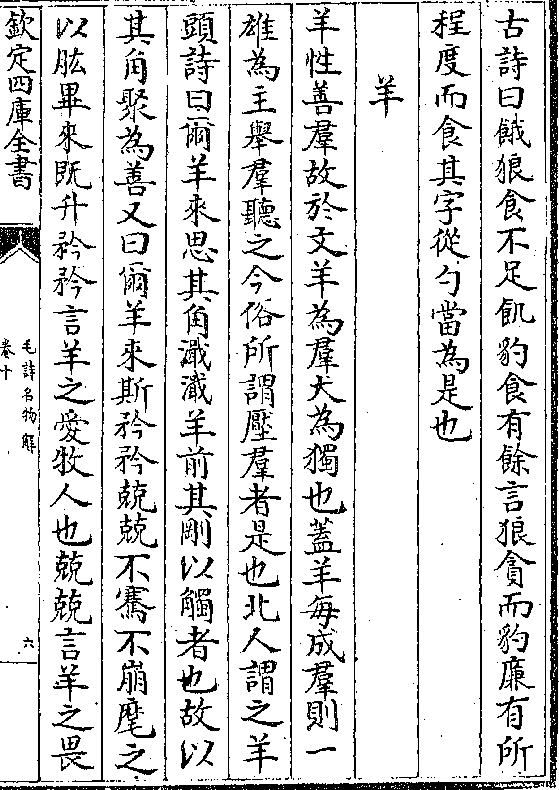 古詩曰餓狼食不足飢豹食有餘言狼貪而豹廉有所
程度而食其字從勺當為是也
羊
羊性善羣故於文羊為羣犬為獨也蓋羊每成羣則一
雄為主舉羣聽之今俗所謂壓羣者是也北人謂之羊
頭詩曰爾羊來思其角濈濈羊前其剛以觸者也故以
其角聚為善又曰爾羊來斯矜矜兢兢不騫不崩麾之
以肱畢來既升矜矜言羊之愛牧人也兢兢言羊之畏
欽定四庫全書
毛詩名物解
卷十
六